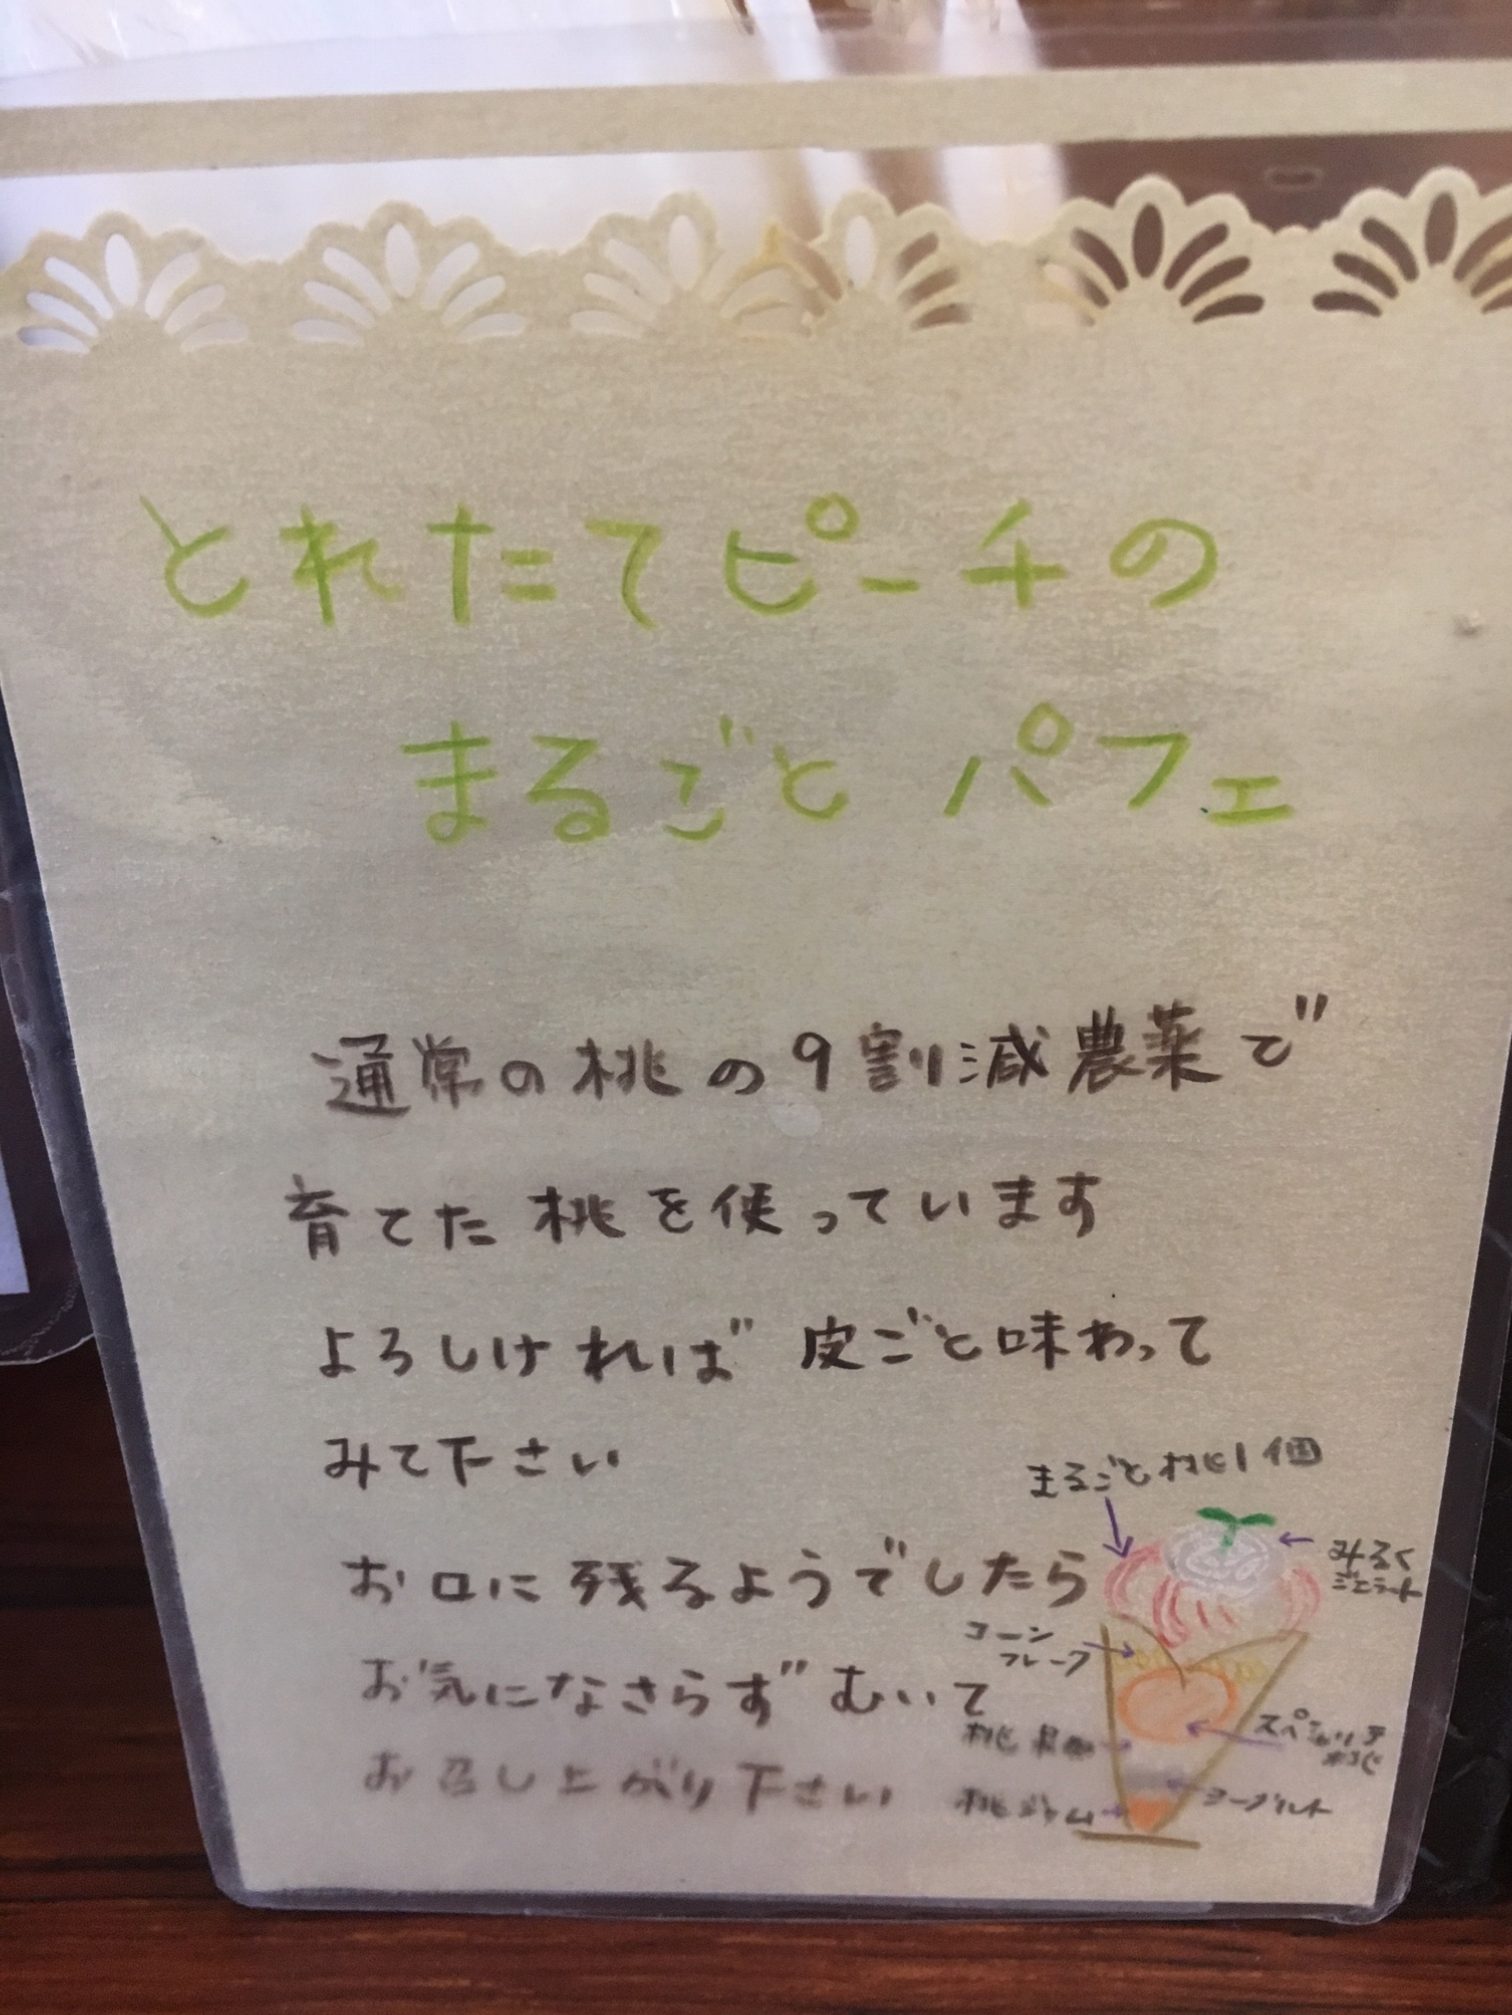 とれたてピーチの
まるごと パフェ
通常の桃の9割減農薬で
育てた桃を使っています
よろしければ 皮ごと味わって
みて下さい
お口に残るようでしたら
お気になさらず むいて
お召し上がり下さい
まるごと桃1個
みるく
ジェラート
コーン
フレーク
桃
ヨーグルト
桃ジャム